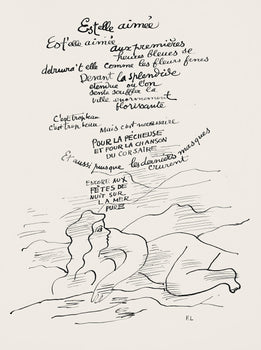 Est elle aimée
Est'elle aimée
aux premières
heures bleues se
détruira't elle comme les fleurs feues
Devant la splendide
étendue où l'on
sente souffler la
ville énormément
florissante
C'est trop beau
C'est trop beau
Mais c'est nécessaire
POUR LA PÊCHEUSE
ET POUR LA CHANSON
DU CORSAIRE
Et aussi puisque les derniers masques
crurent
ENCORE AUX
FÊTES DE
NUIT SUR
LA MER
PURE
F.L